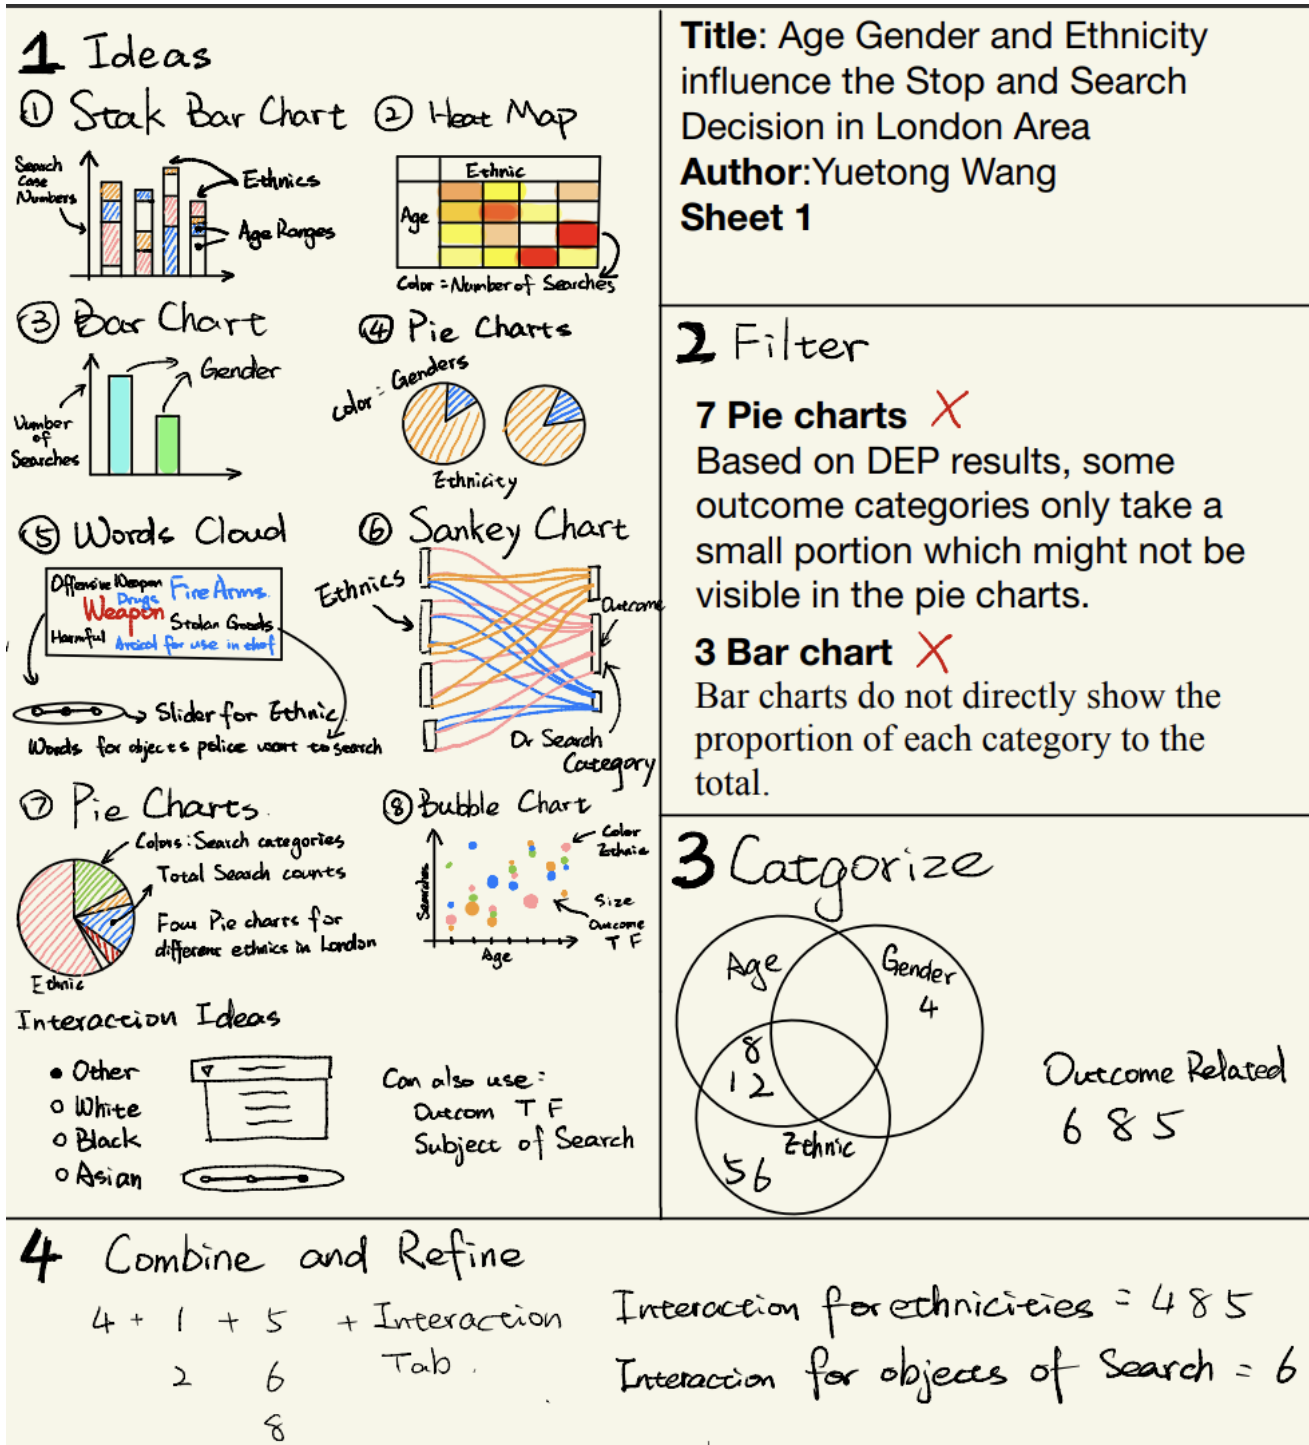 1 Ideas
① Stak Bar Chart
Search
Case
Numbers
Ethnics
Age Ranges
② Heat Map
Ethnic
Age
Color = Number of Searches
③ Bar Chart
Gender
Number
of
Searches
④ Pie Charts
Color = Genders
Ethnicity
⑤ Words Cloud
Offensive Weapon
Fire Arms
Drugs
Weapon
Stolan Goods
Harmful
for use in
Slider for Ethnic
Words for objects police want to search
⑥ Sankey Chart
Ethnics
Outcome
Or Search
Category
⑦ Pie Charts.
Colors: Search categories
Total Search counts
Four Pie charts for
different ethnics in London
Ethnic
⑧ Bubble Chart
Color
Ethnic
Searches
Size
Outcome
T F
Age
Interaction Ideas
Other
White
Black
Asian
Can also use:
Outcom T F
Subject of Search
Title: Age Gender and Ethnicity
influence the Stop and Search
Decision in London Area
Author:Yuetong Wang
Sheet 1
2 Filter
7 Pie charts X
Based on DEP results, some
outcome categories only take a
small portion which might not be
visible in the pie charts.
3 Bar chart X
Bar charts do not directly show the
proportion of each category to the
total.
3 Catgorize
Age
Gender
4
8
1 2
Ethnic
5 6
Outcome Related
6 8 5
4 Combine and Refine
4 + 1 + 5 + Interaction
2 6 Tab.
8
Interaction for ethnicities = 4 8 5
Interaction for objects of Search = 6